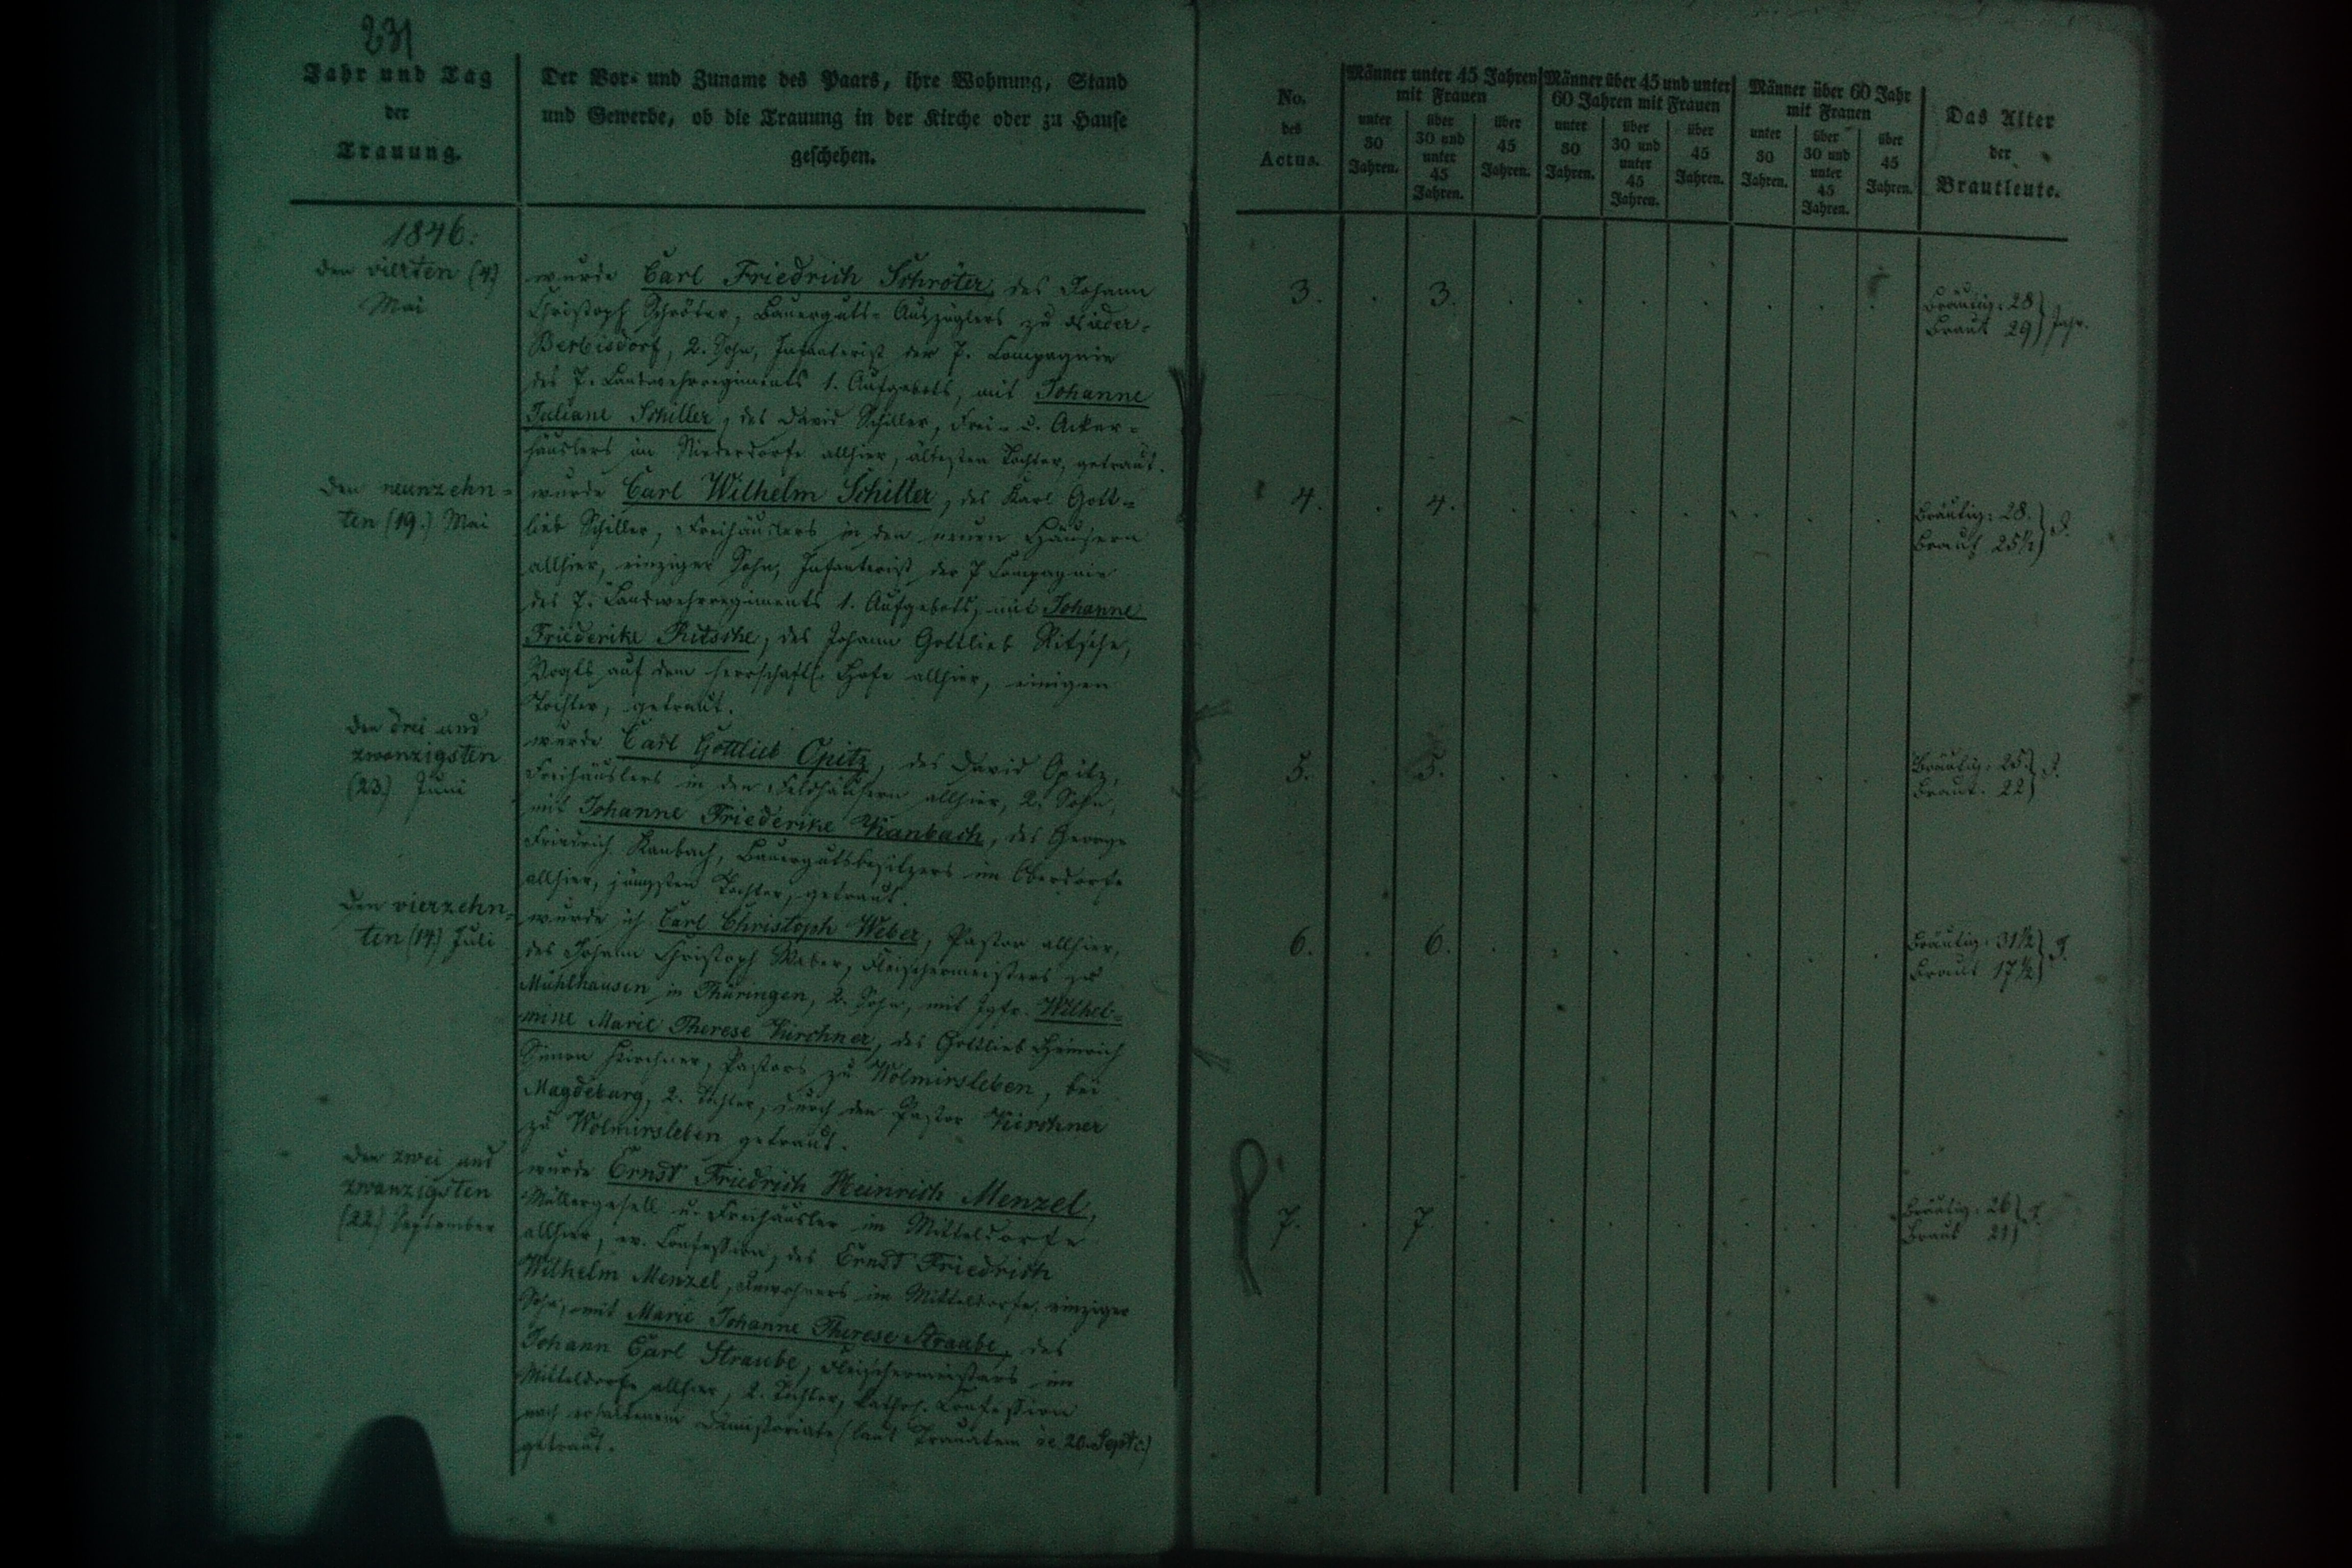 231
Jahr und Tag
der
Trauung.
Der Vor- und Zuname des Paars, ihre Wohnung, Stand
und Gewerbe, ob die Trauung in der Kirche oder zu Hause
geschehen.
1846.
den vierten (4)
Mai
wurde Carl Friedrich Schröter, des Johann
Christoph Schröter, Bauerguts-Auszüglers zu Nieder-
Berbisdorf, 2. Sohn, Infanterist der 7. Compagnie
des 7. Landwehrregiments 1. Aufgebots, mit Johanne
Juliane Schiller, des David Schiller, Frei- u. Acker-
häuslers im Niederdorfe allhier, ältesten Tochter, getraut.
den neunzehn-
ten (19.) Mai
wurde Carl Wilhelm Schiller, des Karl Gott-
lieb Schiller, Freihäuslers in den neuen Häusern
allhier, einziger Sohn, Infanterist der 7 Compagnie
des 7. Landwehrregiments 1. Aufgebots, mit Johanne
Friederike Ritsche, des Johann Gottlieb Ritsche,
Vogts auf dem herrschaftl. Hofe allhier, einigen
Tochter, getraut.
den drei und
zwanzigsten
(23.) Juni
wurde Carl Gottlieb Opitz, des David Opitz,
Freihäuslers in den Feldhäusern allhier, 2. Sohn,
mit Johanne Friederike Kanbach, des George
Friedrich Kanbach, Bauergutsbesitzers im Oberdorfe
allhier, jüngsten Tochter, getraut.
den vierzehn-
ten (14.) Juli
wurde ich Carl Christoph Weber, Pastor allhier,
des Johann Christoph Weber, Fleischermeisters zu
Mühlhausen in Thüringen, 2. Sohn, mit Jgfr. Wilhel-
mine Marie Therese Kirchner, des Gottlieb Heinrich
Simon Kirchner, Pastors zu Wolmirsleben, bei
Magdeburg, 2. Tochter, durch den Pastor Kirchner
zu Wolmirsleben getraut.
den zwei und
zwanzigsten
(22.) September
wurde Ernst Friedrich Heinrich Menzel,
Müllergesell u. Freihäusler im Mitteldorfe
allhier, ev. Confession, des Ernst Friedrich
Wilhelm Menzel, Inwohners im Mitteldorfe, einziger
Sohn, mit Marie Johanne Therese Straube, des
Johann Carl Straube, Fleischermeisters im
Mitteldorfe allhier, 2. Tochter, kathol. Confession
nach erhaltenem Dimissoriale (laut de 20. Sept. c.)
getraut.
No.
des
Actus.
Männer unter 45 Jahren
mit Frauen
unter
30
Jahren.
über
30 und
unter
45
Jahren.
über
45
Jahren.
Männer über 45 und unter
60 Jahren mit Frauen
unter
30
Jahren.
über
30 und
unter
45
Jahren.
über
45
Jahren.
Männer über 60 Jahr
mit Frauen
unter
30
Jahren.
über
30 und
unter
45
Jahren.
über
45
Jahren.
Das Alter
der
Brautleute.
3. . 3. . . . . . . .
Bräutig. 28
Braut 29 } Jahr.
4. . 4. . . . . . . .
Bräutig. 28.
Braut 25½ } J.
5. . 5. . . . . . . .
Bräutig. 25.
Braut. 22 } J.
6. . 6. . . . . . . .
Bräutig. 31½
Braut 17½ } J.
7. . 7. . . . . . . .
Bräutig. 26
Braut 21 } J.